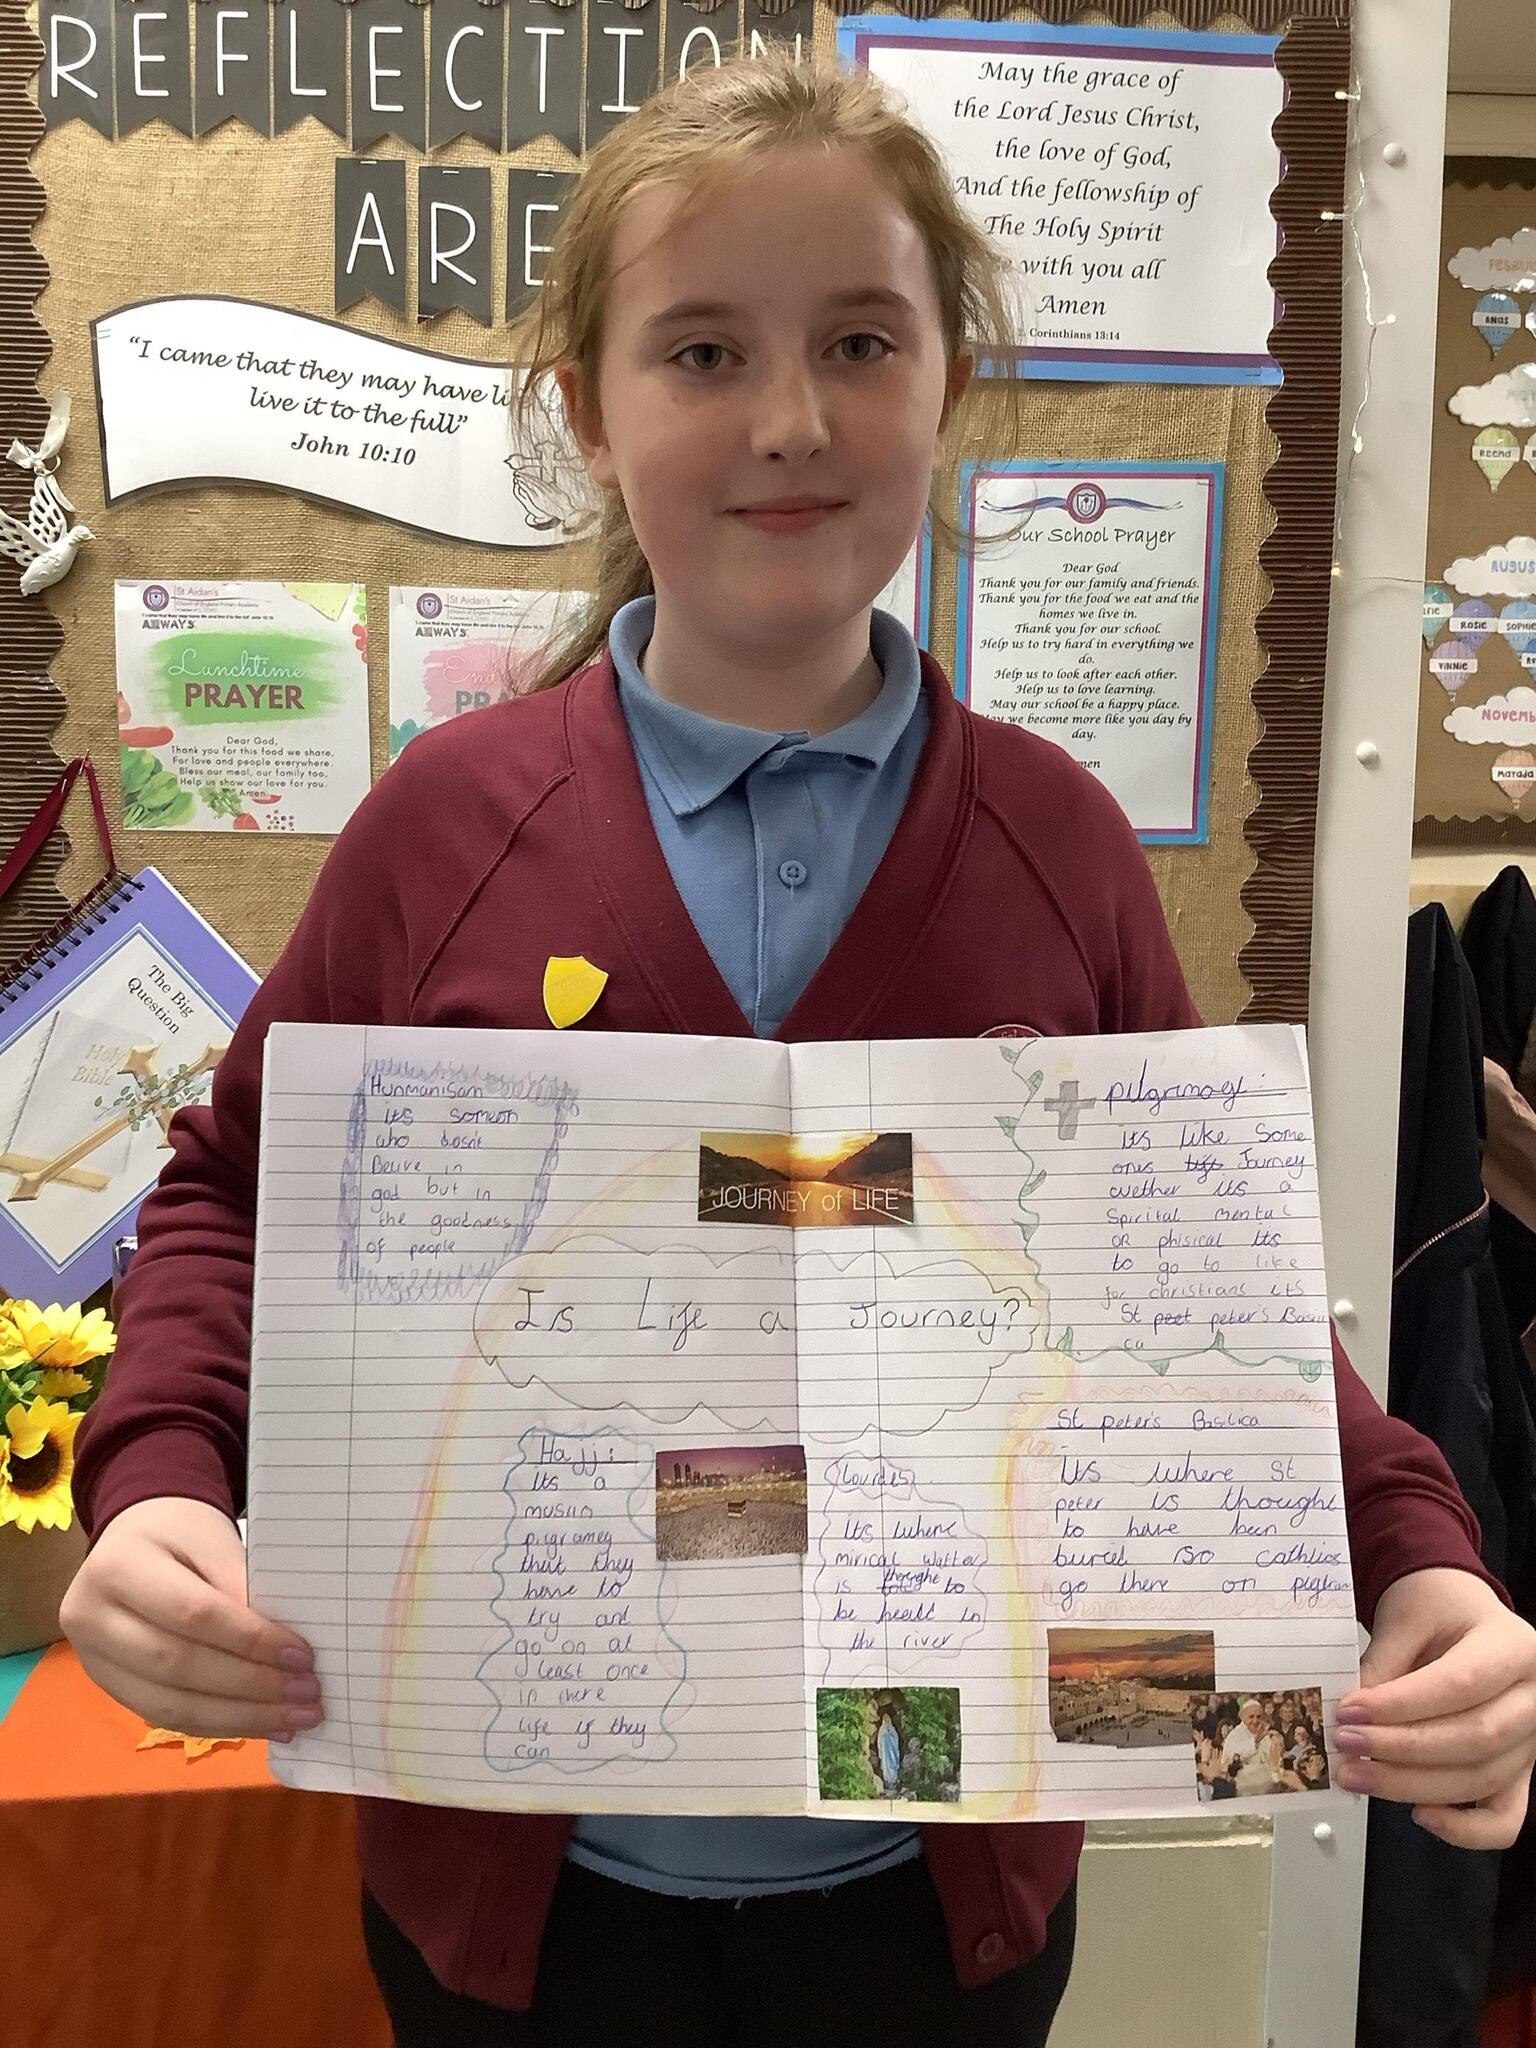 REFLECTION
ARE
May the grace of
the Lord Jesus Christ,
the love of God,
And the fellowship of
The Holy Spirit
with you all
Amen
Corinthians 13:14
"I came that they may have
live it to the full"
John 10:10
St Aidan's
Church of England Primary Academy
ALWAYS
Lunchtime
PRAYER
Dear God,
Thank you for this food we share,
For love and people everywhere.
Bless our meal, our family too,
Help us show our love for you.
Amen
St Aidan's
ALWAYS
Our School Prayer
Dear God
Thank you for our family and friends.
Thank you for the food we eat and the
homes we live in.
Thank you for our school.
Help us to try hard in everything we
do.
Help us to look after each other.
Help us to love learning.
May our school be a happy place.
May we become more like you day by
day.
ANAS
REEMA
AUGUS
ROSIE
SOPHIE
VINNIE
NOVEMB
The Big
Question
Holy
Bible
Hunmanisam
its someon
who dosnt
Belive in
god but in
the goodness
of people
JOURNEY of LIFE
Is Life a Journey?
pilgrimage:
its like some
ones Journey
wether its a
Spirital mental
OR phisical its
to go to like
for christians its
St peter's Basili
ca
Hajj:
its a
muslim
pilgrameg
that they
have to
try and
go on at
least once
in there
life if they
can
Lourdes
its where
mirical watter
is thought to
be heald in
the river
St peter's Basilica
its where St
peter is thought
to have been
buried so catholics
go there on pilgram